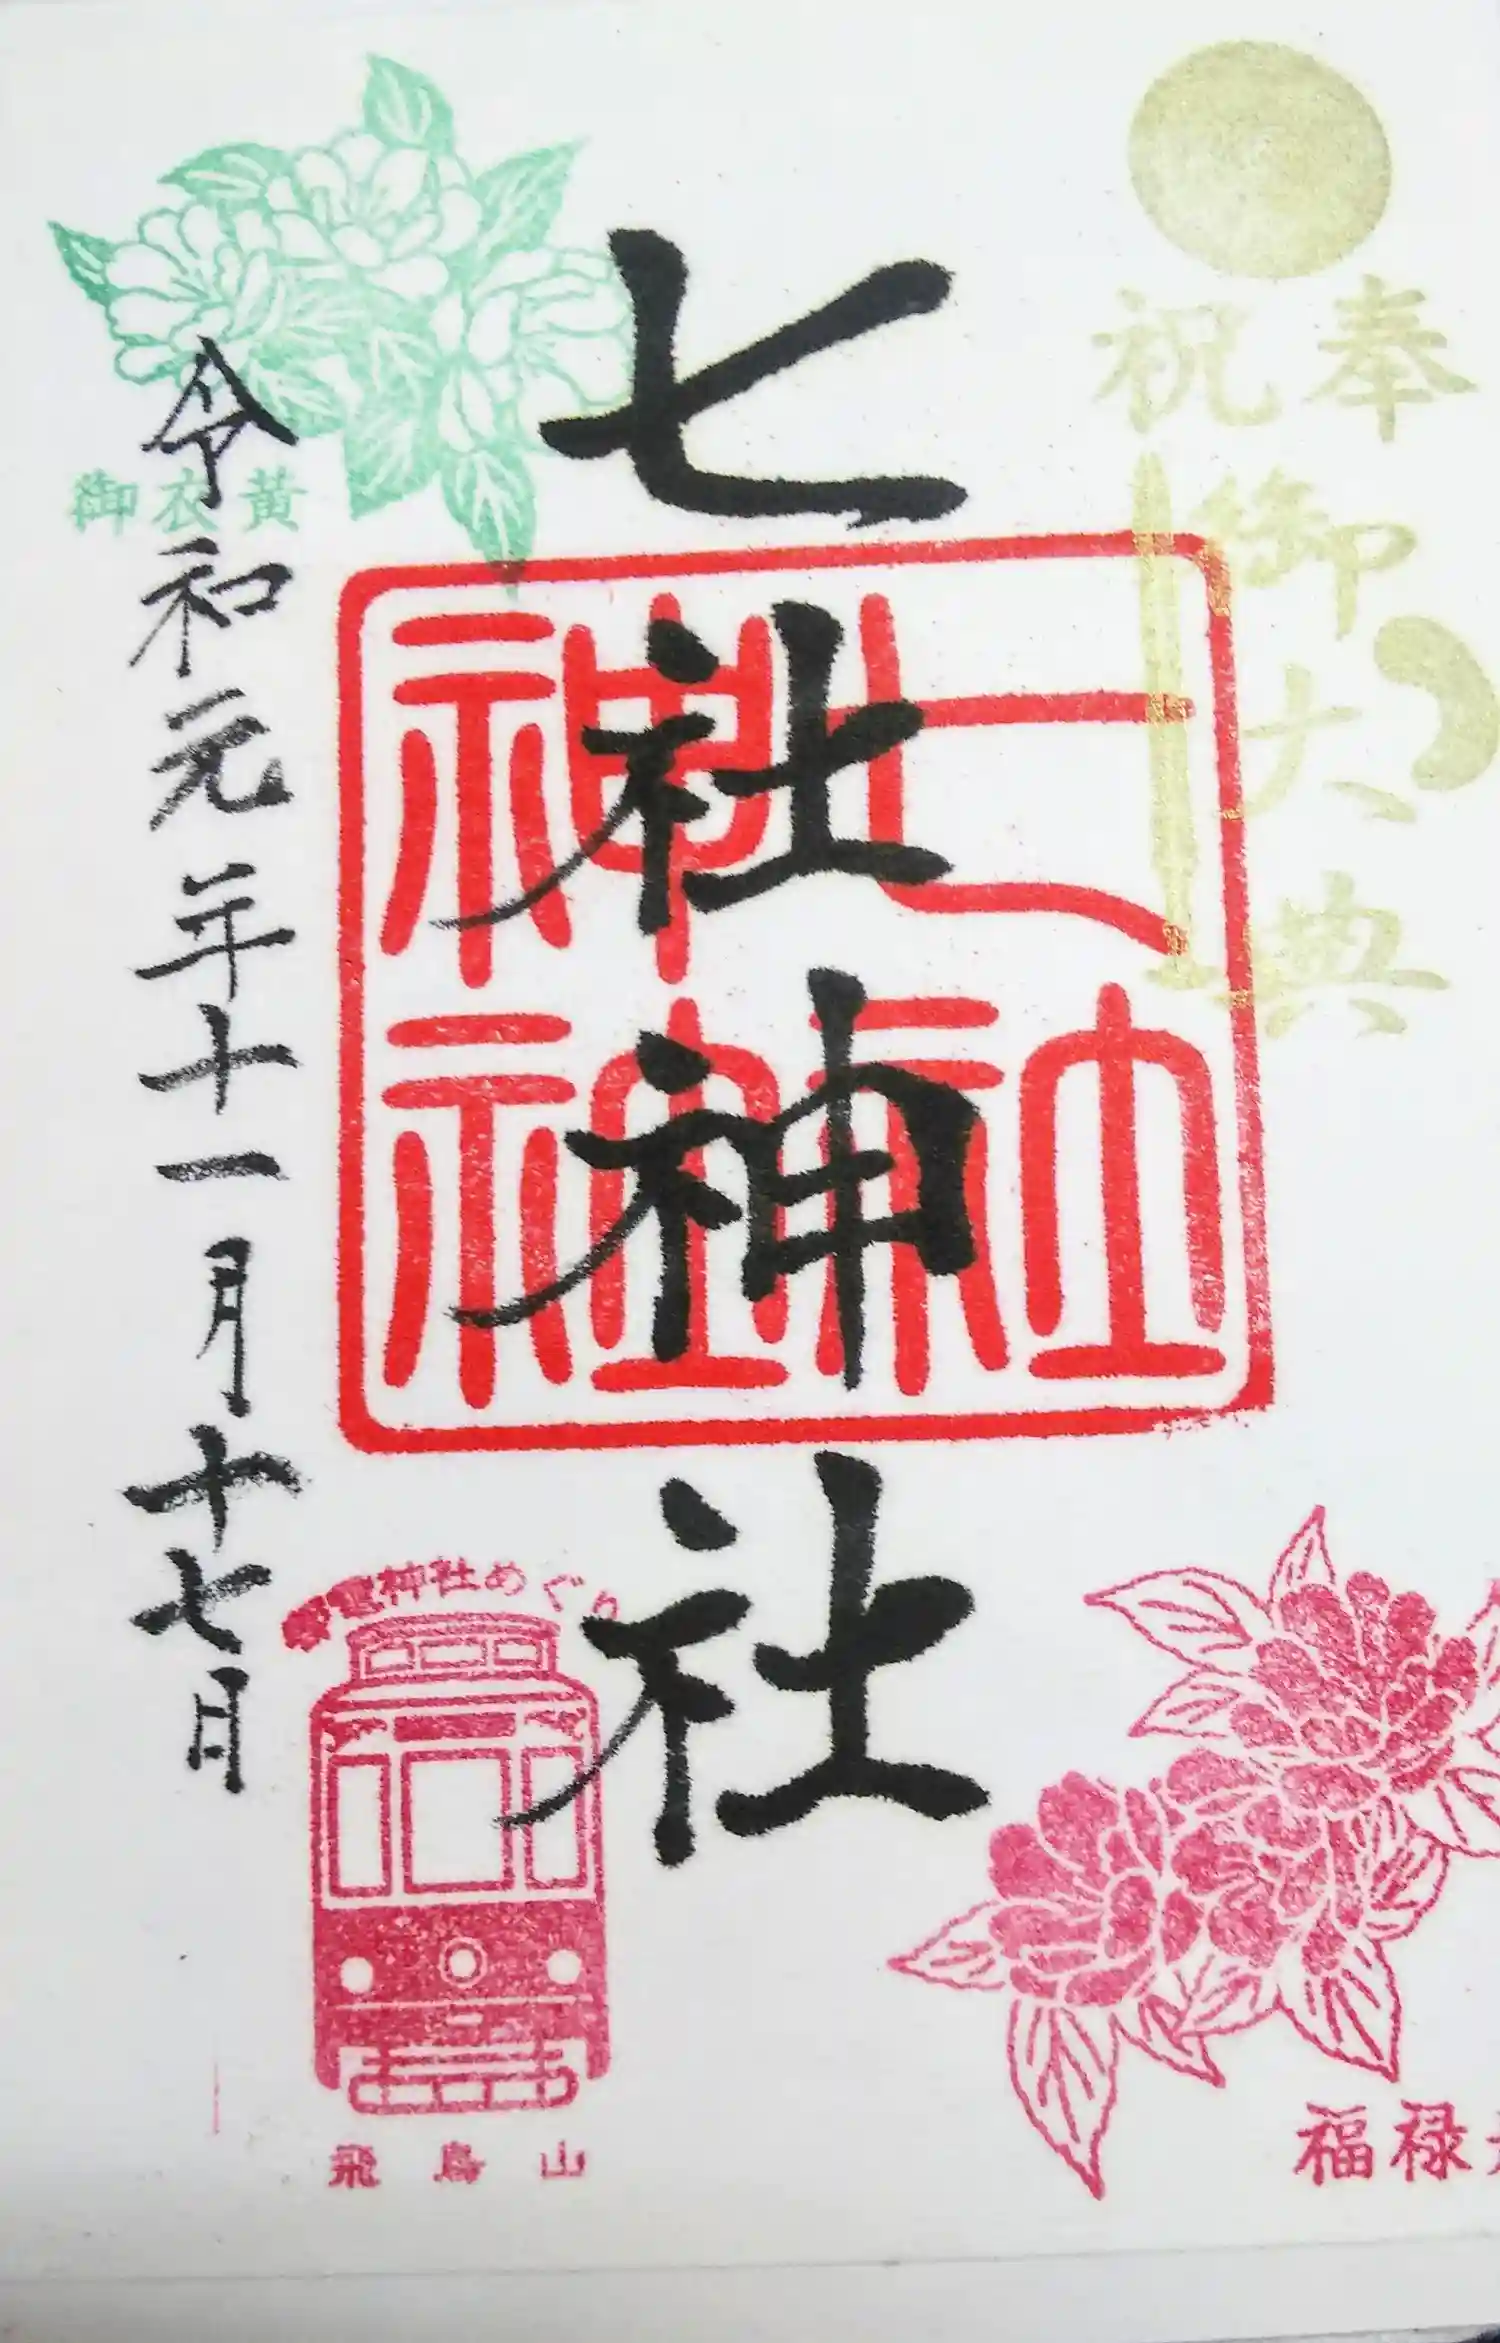 奉祝
御大典
七社神社
七社神社神社
令和元年十一月十七日
御衣黄
神社めぐり
飛鳥山
福禄